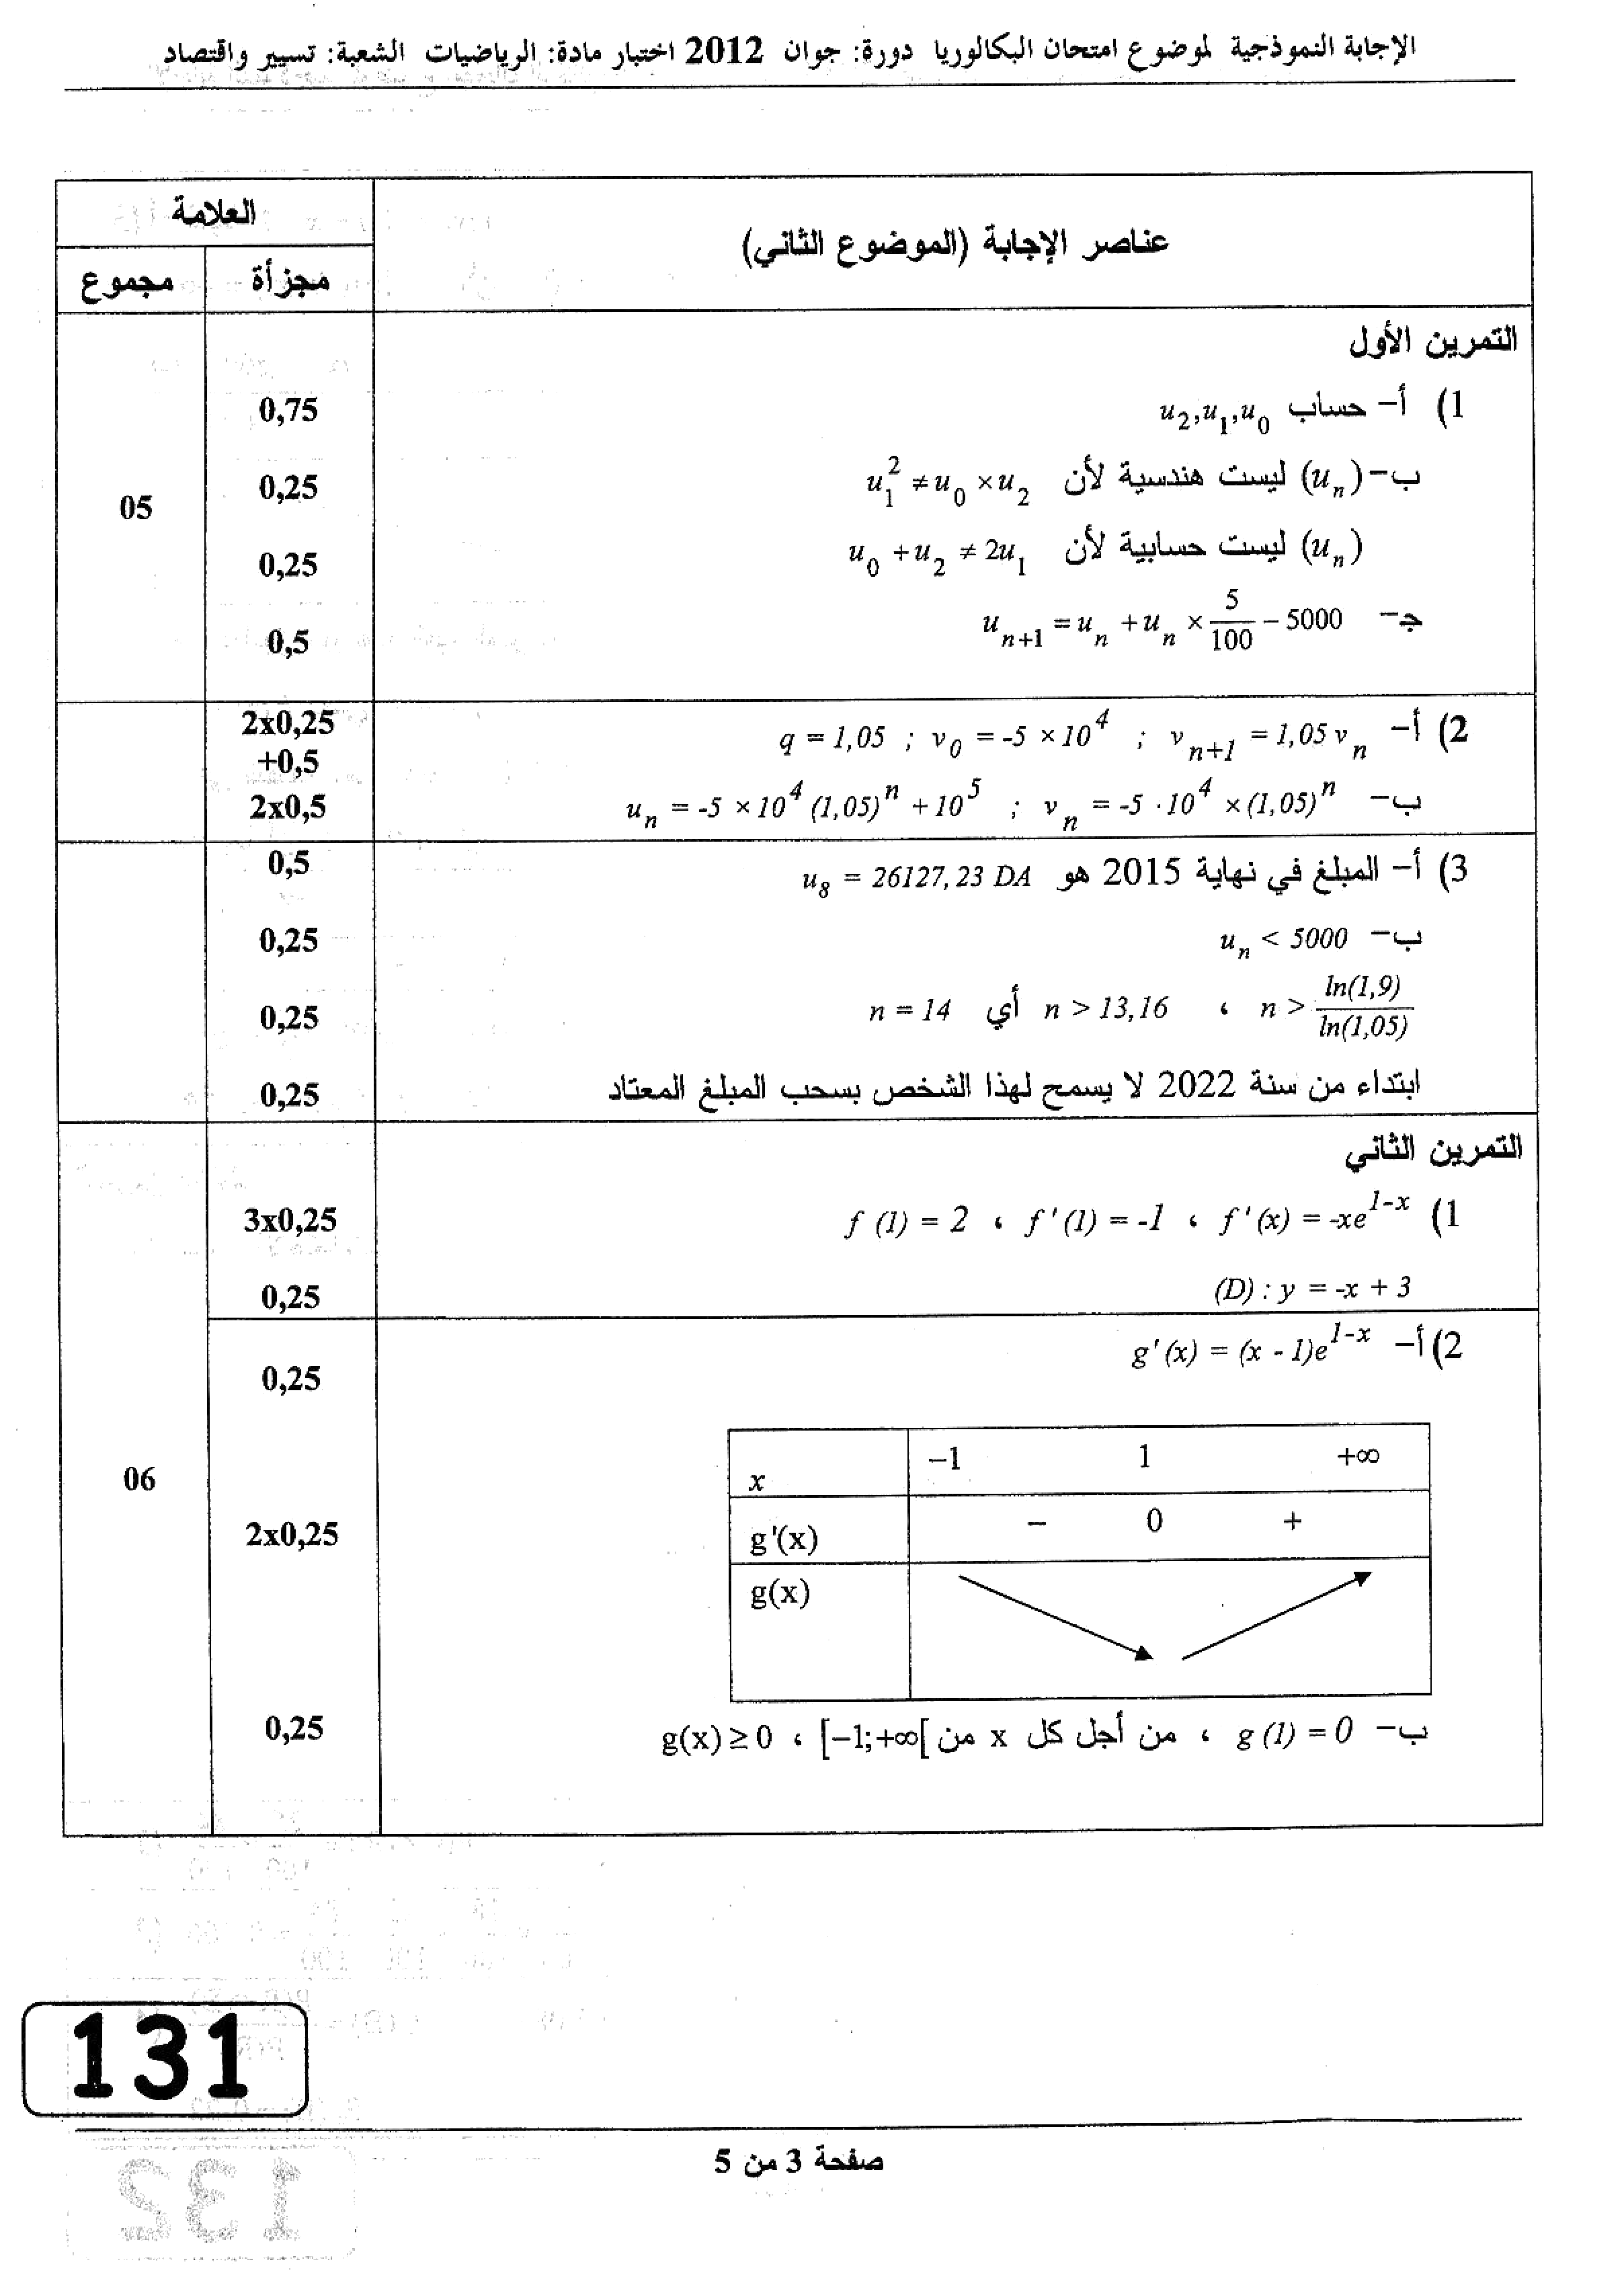 الإجابة النموذجية لموضوع امتحان البكالوريا دورة: جوان 2012 اختبار مادة: الرياضيات الشعبة: تسيير واقتصاد
عناصر الإجابة (الموضوع الثاني)
العلامة
مجزأة
مجموع
التمرين الأول
1) أ– حساب u₂,u₁,u₀
0,75
ب– (uₙ) ليست هندسية لأن u₁² ≠ u₀ × u₂
0,25
05
(uₙ) ليست حسابية لأن u₀ + u₂ ≠ 2u₁
0,25
ج– uₙ₊₁ = uₙ + uₙ × 5/100 – 5000
0,5
2) أ– q = 1,05 ; v₀ = -5 × 10⁴ ; vₙ₊₁ = 1,05 vₙ
2x0,25
+0,5
ب– uₙ = -5 × 10⁴ (1,05)ⁿ + 10⁵ ; vₙ = -5 · 10⁴ × (1,05)ⁿ
2x0,5
3) أ– المبلغ في نهاية 2015 هو u₈ = 26127,23 DA
0,5
ب– uₙ < 5000
0,25
n > ln(1,9)/ln(1,05) ، n > 13,16 أي n = 14
0,25
ابتداء من سنة 2022 لا يسمح لهذا الشخص بسحب المبلغ المعتاد
0,25
التمرين الثاني
1) f '(x) = -xe¹⁻ˣ ، f '(1) = -1 ، f (1) = 2
3x0,25
(D) : y = -x + 3
0,25
2) أ– g'(x) = (x - 1)e¹⁻ˣ
0,25
x –1 1 +∞
06
g'(x) – 0 +
2x0,25
g(x)
ب– g (1) = 0 ، من أجل كل x من [–1;+∞[ ، g(x) ≥ 0
0,25
131
صفحة 3 من 5
132